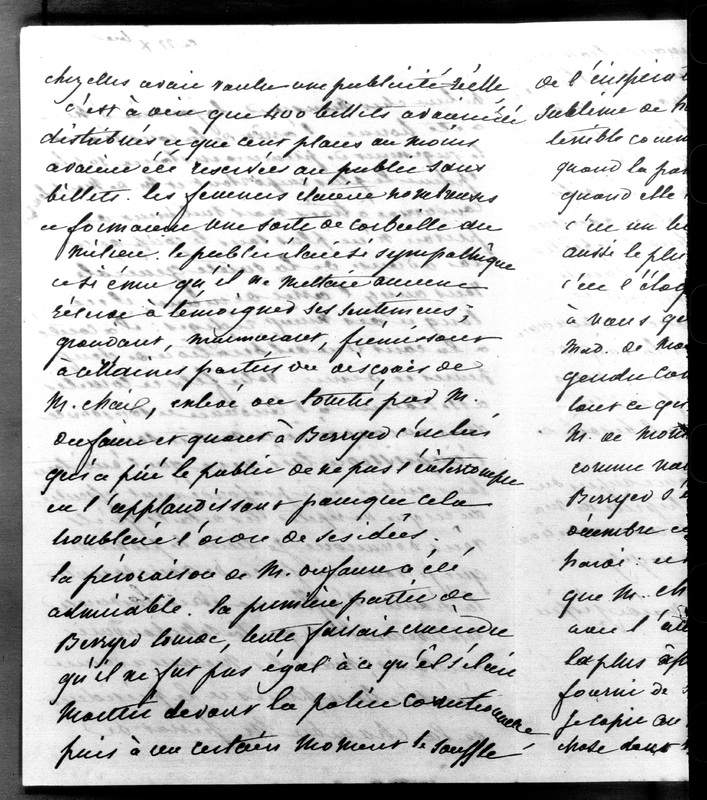 chez elles avait voulu une publicité réelle
c'est à dire que 400 billets avaient été
distribués et que cent places au moins
avaient été réservées au public sans
billets. les femmes étaient nombreuses
et formaient une sorte de corbeille au
milieu. le public était si sympathique
et si ému qu'il ne mettait aucune
réserve à témoigner ses sentimens;
grondant, murmurant, frémissant
à certaines parties du discours de
M. Chaix, ou touché par M.
Dufaure et quant à Berryer c'est lui
qui a prié le public de ne pas l'interrompre
en l'applaudissant parce que cela
troublait l'ordre de ses idées.
la péroraison de M. Dufaure a été
admirable. la première partie de
Berryer lourde, lente faisait craindre
qu'il ne fut pas égal à ce qu'il s'était
montré devant la police correctionnelle
puis à un certain moment le souffle
de l'inspirat
sublime de
terrible comm
quand la par
quand elle
c'est un
aussi le plus
c'est l'élog
à vous qu
Mad. de
gendu
tout ce qu
M. de Mon
comme
Berryer s'é
décembre
paroi: et
que M. Ch
avec l'
la plus âp
fourni de
Je copie
chose dans